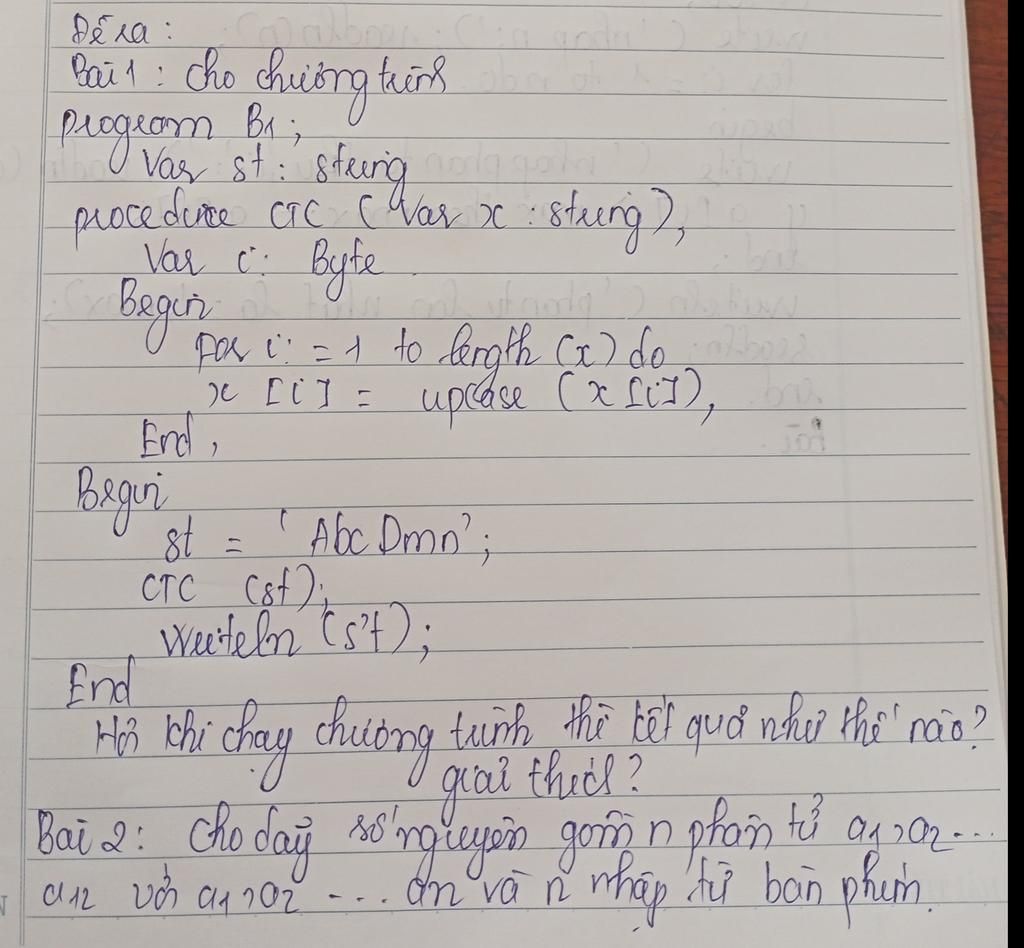 Đề ra:
Bài 1: Cho chương trình
program B1;
Var st: string
procedure CTC (Var x: string),
Var i: Byte
Begin
For i:=1 to length (x) do
x [i] = upcase (x[i]),
End,
Begin
st = 'Abc Dmn';
CTC (st);
Writeln (s't);
End
Hỏi khi chạy chương trình thì kết quả như thế nào?
giải thích?
Bài 2: Cho dãy số nguyên gồm n phần tử a1, a2 ...
a12 với a1, a2 ... an và n nhập từ bàn phím.